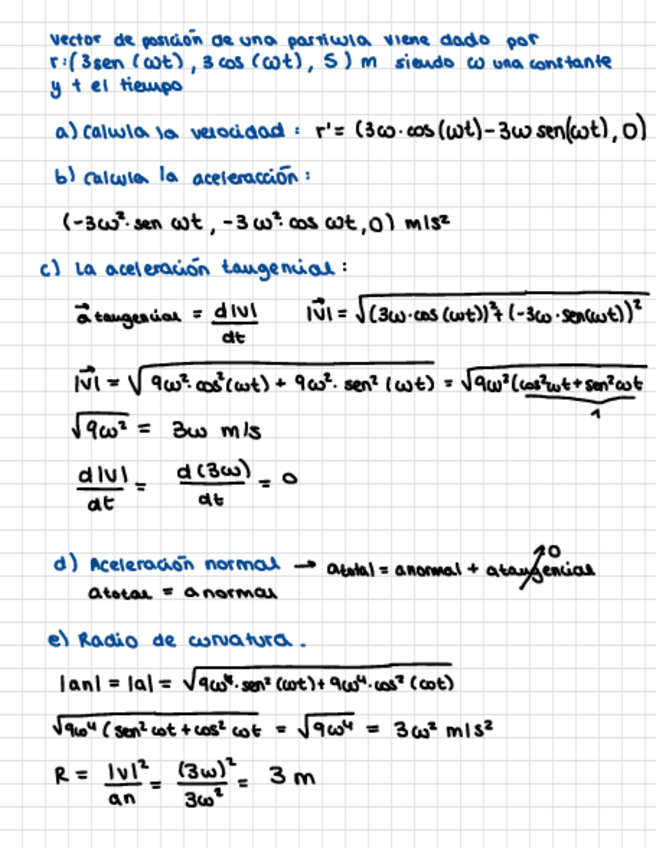 Vector de posición de una partícula viene dado por
r:(3sen (ωt), 3 cos (ωt), 5) m siendo ω una constante
y t el tiempo
a) Calcula la velocidad : r'= (3ω·cos(ωt)-3ω sen(ωt), 0)
b) Calcula la aceleracción :
(-3ω²·sen ωt, -3ω²·cos ωt, 0) m/s²
c) La aceleración tangencial :
a⃗ tangencial = d|v|/dt |v⃗| = √((3ω·cos (ωt))²+(-3ω·sen(ωt))²
|v⃗| = √(9ω²·cos²(ωt) + 9ω²·sen²(ωt)) = √(9ω²(cos²ωt+sen²ωt
1
√9ω² = 3ω m/s
d|v|/dt = d(3ω)/dt = 0
d) Aceleración normal → atotal = anormal + atangencial ↗0
atotal = anormal
e) Radio de curvatura.
|an| = |a| = √(9ω⁴·sen²(ωt)+9ω⁴·cos²(ωt)
√(9ω⁴(sen²ωt+cos²ωt = √9ω⁴ = 3ω² m/s²
R = |v|²/an = (3ω)²/3ω² = 3 m